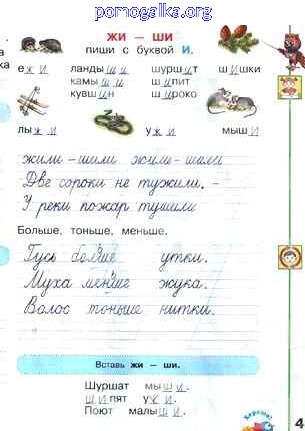 pomogalka.org
ЖИ — ШИ
пиши с буквой И.
ежи ландыши шуршит шишки
камыши шипит
кувшин широко
лыжи ужи мыши
жили – шили жили – шили
Две сороки не тужили. –
У реки пожар тушили
Больше, тоньше, меньше.
Гусь больше утки.
Муха меньше жука.
Волос тоньше нитки.
Вставь жи – ши.
Шуршат мыши.
Шипят ужи.
Поют малыши.
Хорошо!
4